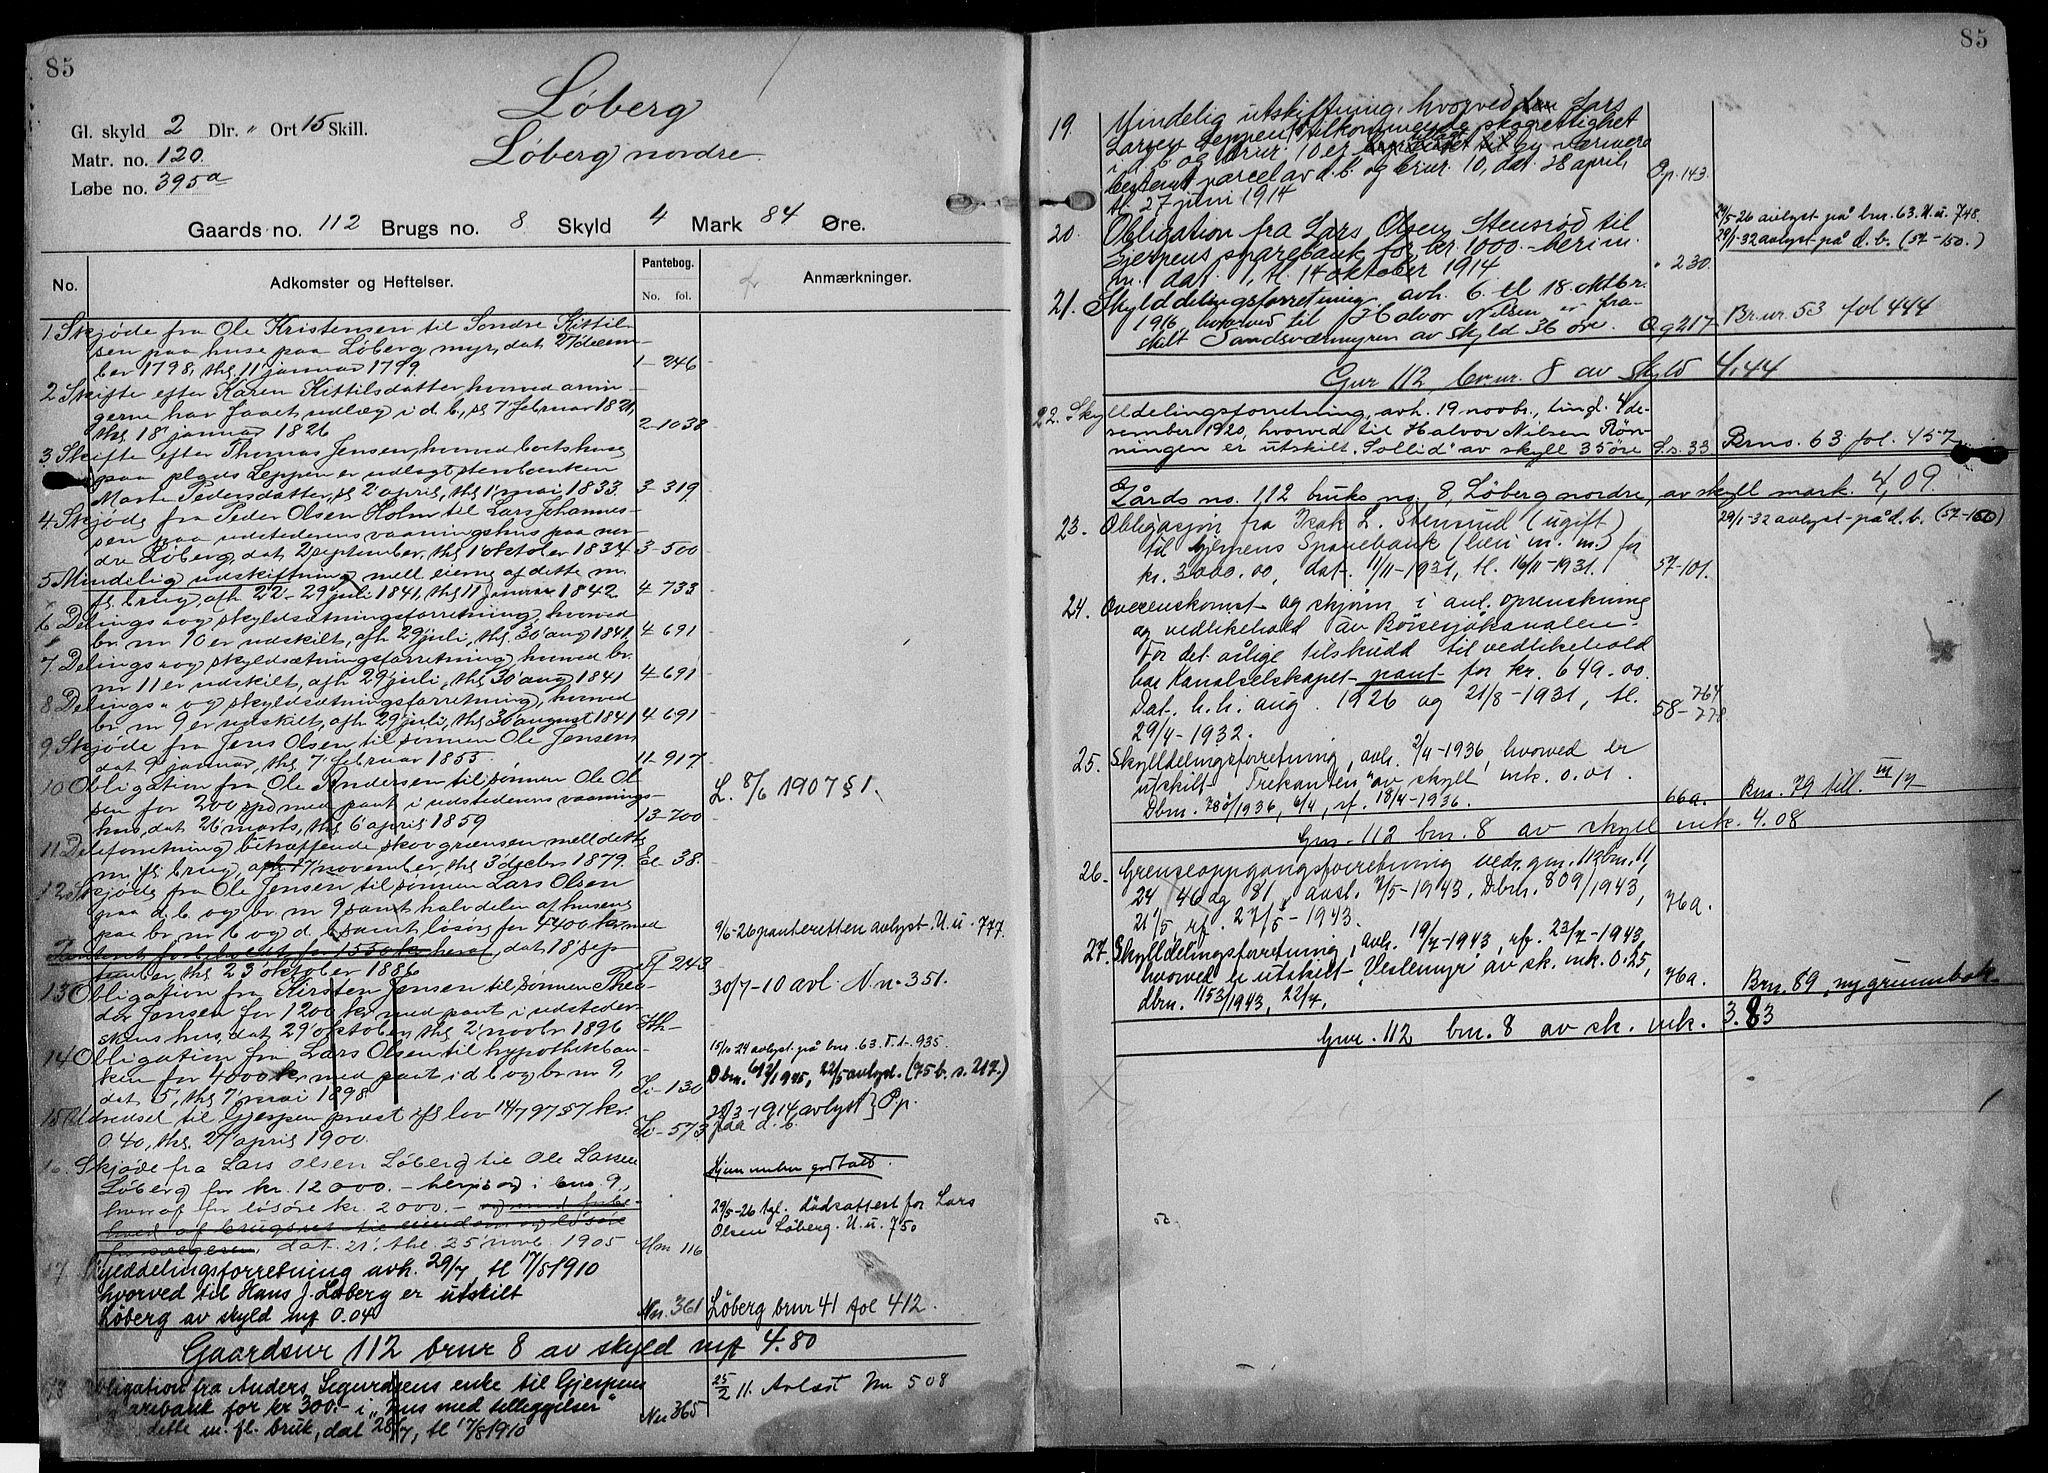 85
Løberg
Løberg nordre.
Gl. skyld 2 Dlr. " Ort 15 Skill.
Matr. no. 120.
Løbe no. 395a
Gaards no. 112 Brugs no. 8 Skyld 4 Mark 84 Øre.
No. Adkomster og Heftelser. Pantebog. No. fol. Anmærkninger.
1 Skjøde fra Ole Kristensen til Sondre Kittil-
sen paa huse paa Løberg myr, dat 27 decem-
ber 1798, thl 11 januar 1799. 1-246
2 Skifte efter Karen Kittilsdatter hvorved arvin-
gerne har faaet udlæg i d. b., sl 7 februar 1821,
thl 18 januar 1826 2-1038
3. Skifte efter Thomas Jensen, hvorved bortshuse
paa plads Leppen er udlagt stenbanken
Marte Pedersdatter, sl 2 april, thl 1 mai 1833. 3-319
4. Skjøde fra Peder Olsen Holm til Lars Johannes-
sen paa udstederens vaaningshus paa nor-
dre Løberg, dat 2 september, thl 1 oktober 1834. 3-500
5 Mindelig udskiftning mell eierne af dette m.
fl. brug, afh 22-29 juli 1841, thl 11 januar 1842 4-733
6 Delings- og skyldsætningsforretning, hvorved
br nr 10 er udskilt, afh 29 juli, thl 30 aug 1841 4-691
7. Delings- og skyldsætningsforretning, hvorved br.
nr 11 er udskilt, afh 29 juli, thl 30 aug 1841 4-691
8 Delings- og skyldsætningsforretning, hvorved
br nr 9 er udskilt, afh 29 juli, thl 30 august 1841 4-691
9. Skjøde fra Jens Olsen til sønnen Ole Jensen
dat 9 januar, thl 7 februar 1855. 11-917
10 Obligation fra Ole Andersen til sønnen Ole Ol-
sen for 200 spd med pant i udstederens vaanings-
hus, dat 26 marts, thl 6 april 1859 13-700 L. 8/6 1907 § 1.
11 Deleforretning betræffende skovgrænsen mell dette
m. fl. brug, afh 17 november, thl 3 decbr 1879. 38.
12 Skjøde fra Ole Jensen til sønnen Lars Olsen
paa d. b og br nr 9 samt halvdelen af husene
paa br nr 6 og d. b samt løsøre for 4400 kr med
panteret forbeholdt for 1550 kr heraf, dat 18 sep-
tember, thl 23 oktober 1886 243 9/6-26 panteretten avlyst. U. u. 777.
13 Obligation fra Kirsten Jensen til sønnen Theo-
dor Jensen for 1200 kr med pant i udsteder-
skens hus, dat 29 oktober, thl 2 novbr 1896 30/7-10 avl. N. n. 351.
14 Obligation fra Lars Olsen til hypothekban-
ken for 4000 kr med pant i d. b og br nr 9,
dat 5, thl 7 mai 1898 130 15/10 24 avlyst på bnr. 63. T. t. 935.
Dbnr. 612/1945, 22/5 avlyst. (75 b. s. 217.)
15 Udræusel til Gjerpen præst ifl lov 14/7 97 57 kr.
0.40, thl. 27 april 1900. 573 28/3-1914, avlyst paa d. b. } P.p.
16. Skjøde fra Lars Olsen Løberg til Ole Larsen
Løberg for kr. 12000.- heri og i bno. 9,
hvoraf for løsøre kr. 2000.-
dat. 21', thl. 25' novb. 1905 116
29/5-26 tgl. dødsattest for Lars
Olsen Løberg. U. u. 750
17 Skylddelingsforretning avh. 29/7 tl 17/8 1910
hvorved til Hans J. Løberg er utskilt
Løberg av skyld mk 0.04 Nn. 361 Løberg brnr 41 fol 412.
Gaardsnr 112 brnr 8 av skyld mk 4.80
18 Obligation fra Anders Sigurdsens enke til Gjerpens
sparebank for kr 300.- i "hus med tilleggelser"
dette m. fl. bruk, dat 28/7, tl 17/8 1910 Nn 365 25/2 11. Avlæst Nn 508
85
19. Mindelig utskiftning, hvorved den Lars
Larsen Leppen tilkommende skogrettighet
i d. b. og brnr. 10 er henlagt til en nærmere
bestemt parcel av d. b. og brnr. 10, dat 28 april,
tl. 27 juni 1914 Op. 143.
20. Obligation fra Lars Olsen Stensrød til
Gjerpens sparebank for kr. 1000.- heri m.
m., dat. 1, tl. 14 oktober 1914 " 230. 29/5-26 avlyst på bnr. 63. U. u. 748.
29/1-32 avlyst på d. b. (57-150.)
21. Skylddelingsforretning avh. 6. tl 18. oktbr.
1916, hvorved til Halvor Nilsen er fra-
skilt Sandsværmyren av skyld 36 øre. Oq 217 Brnr. 53 fol 444
Gnr 112 brnr. 8 av skyld 4,44
22. Skylddelingsforretning, avh. 19 novbr., tingl. 4 de-
sember 1920, hvorved til Halvor Nilsen Røn-
ningen er utskilt „Sollid" av skyll 35 øre S. s. 33 Brno. 63 fol. 457
Gårds no. 112 bruks no. 8, Løberg nordre, av skyll mark. 4,09.
23. Obligasjon fra Isak L. Stensrud (ugift)
til Gjerpens Sparebank (heri m. m.) for
kr. 3000.00, dat. 11/11-1931, tl. 16/11-1931. 57-101. 29/1-32 avlyst på d. b. (57-150)
24. Overenskomst og skjønn i anl. oprenskning
og vedlikehold av Børsesjøkanalen.
For det årlige tilskudd til vedlikehold
har Kanalselskapet pant for kr. 649.00.
Dat. h.h. aug. 1926 og 21/8-1931, tl.
29/4-1932. 58-764/778
25. Skylldelingsforretning, avh. 2/4-1936, hvorved er
utskilt „Trekanten" av skyll mk. 0.01.
Dbnr. 280/1936, 6/4, rf. 18/4-1936. 66a. Bnr. 79 till. III 17
Gnr. 112 bnr. 8 av skyll mk. 4.08
26. Grenseoppgangsforretning vedr. gnr. 112 bnr. 11,
24 46 og 81, avsl. 7/5-1943, Dbnr. 809/1943,
21/5, rf. 27/5-1943. 76a.
27. Skylldelingsforretning, avh. 19/7-1943, rf. 23/7-1943
hvorved er utskilt „Veslemyr" av sk. mk. 0.25,
dbnr. 1153/1943, 22/7. 76a. Bnr. 89, ny grunnbok
Gnr. 112 bnr. 8 av sk. mk. 3.83